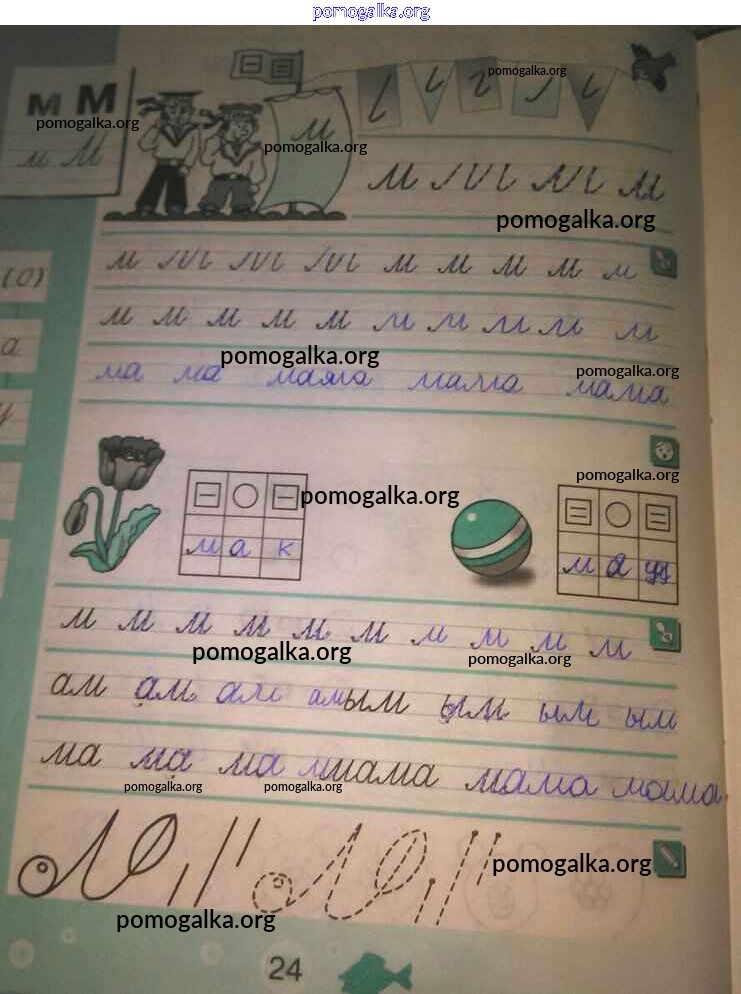 pomogalka.org
м М
pomogalka.org
pomogalka.org
м М
м
pomogalka.org
м м м
pomogalka.org
(о)
м м м м м м
а
м м м м м м м м м м
у
pomogalka.org
pomogalka.org
ма ма мама мама мама
pomogalka.org
pomogalka.org
м а к
м а
м м м м м м м м м м
pomogalka.org
pomogalka.org
ам ам ам ам ым ым ым ым
ма ма ма мама мама мама
pomogalka.org
pomogalka.org
pomogalka.org
pomogalka.org
24